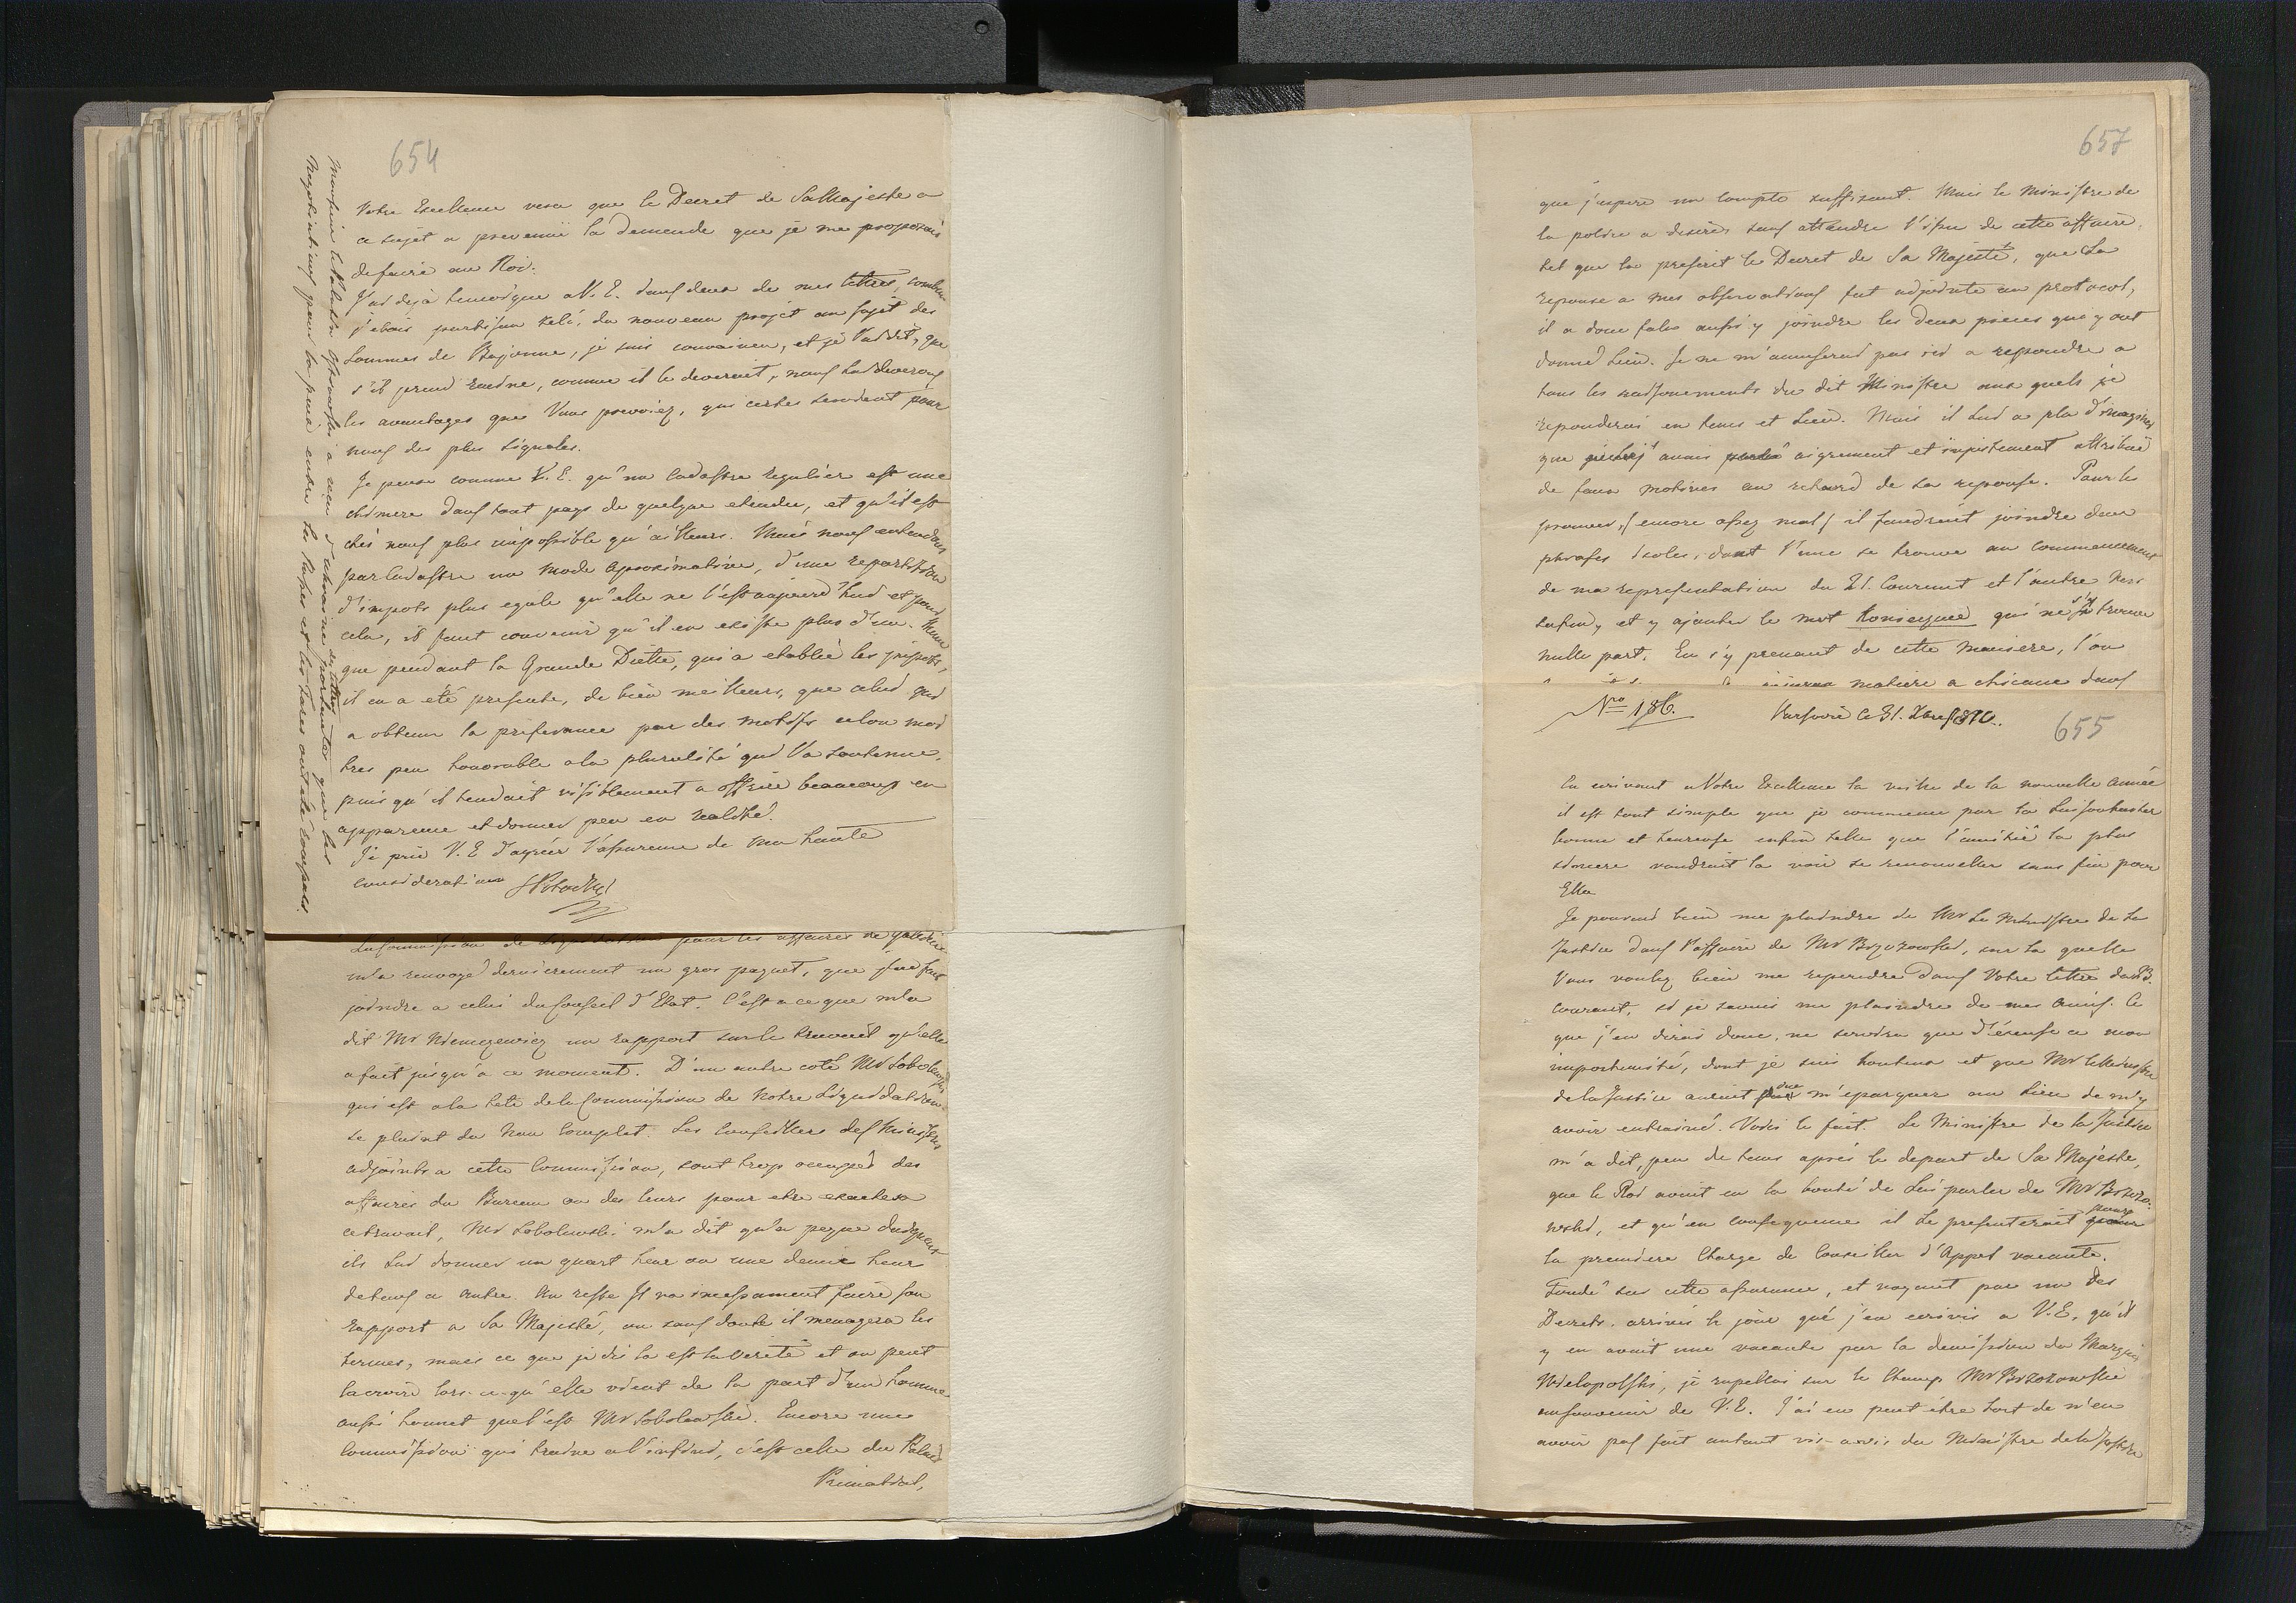 654
Votre Excellence vera que le Decret de Sa Majeste a
ce sujet a prevenu la demande que je me proposais
de faire au Roi.
J'ai deja temoigne a V. E. dans deux de mes lettres, combien
j'etois partisan zelé, du nouveau projet au sujet des
Sommes de Bajonne, je suis convaincu, et je l'ai dit, que
s'il prend racine, comme il le deveroit, nous lui deverons
les avantages que Vous prevoiez, qui certes seroient pour
nous des plus signales.
Je pense comme V. E. qu'un Cadastre regulier est une
chimere dans tout pays de quelque etendue, et qu'il est
chés nous plus impossible qu'ailleurs. Mais nous entendons
par Cadastre un mode aproximative, d'une repartition
d'impots plus egale qu'elle ne l'est aujourd'hui et pour
cela, il faut convenir qu'il en existe plus d'un. Meme
que pendant la Grande Diette, qui a etablie les impots,
il en a été presente, de bien meilleurs, que celui qui
a obtenu la preferance par des motifs selon moi
tres peu honorable a la pluralité qui l'a soutenue,
puis qu'il tendait visiblement a offrir beaucoup en
apparence et donner peu en realité.
Je prie V. E d'agréer l'assurance de ma haute
consideration SPotocki
Monsieur le Palatin Ostrowski a recu d'Ukraine des lettres
importantes que les
negotiations pour la paix entre la Russie et les Turcs ont été rompues.
La Commission de Liquidation pour les affaires de Galicie
m'a renvoyé dernierement un gros paquet, que j'ai fait
joindre a celui du Conseil d'Etat. C'est a ce que m'a
dit Mr Niemcewicz un rapport sur le travail qu'elle
a fait jusqu'a ce moment. D'un autre coté Mr Sobolewski
qui est a la tete de la Commission de Notre Liquidation
se plaint du Non Complet. Les Conseillers des Ministres
adjoints a cette Commission, sont trop occupés des
affaires du Bureau ou des leurs pour etre exactes a
ce travail, Mr Sobolewski m'a dit qu'a peine daignent
ils lui donner un quart heur ou une demie heur
de tems a autre. Au reste Il va incessament faire son
rapport a Sa Majesté, ou sans doute il menagera les
termes, mais ce que je dis la est la verité et on peut
la croire lors-ce-qu'elle vient de la part d'un homme
aussi honnet que l'est Mr Sobolewski. Encore une
Commission qui traine a l'infini, c'est celle du Palais
Primatial,
657
que j'espere un compte suffisant. Mais le Ministre de
la police a desirés sans attendre l'issu de cette affaire,
tel que la prescrit le Decret de Sa Majesté, que la
reponse a mes observations fut adjointe au protocol,
il a donc falu aussi y joindre les deux pieces qui y ont
donné lieu. Je ne m'amuserai pas ici a repondre a
tous les raisonements du dit Ministre aux quels je
reponderai en tems et lieu. Mais il lui a plu d'imaginer
que j'avais aigrement et injustement attribué
de faux motives au retard de sa reponse. Pour le
prouver, (encore assez mal) il faudroit joindre deux
phrases isoles, dont l'une se trouve au commencement
de ma representation du 21. Courant et l'autre vers
la fin, et y ajouter le mot Konsiecznie qui ne s'y trouve
nulle part. En s'y prenant de cette maniere, l'on
matiere a chicane dans
Nro 186. Varsovie Ce 31. Xbre 1810.
655
En ecrivant a Votre Excellence la veille de la nouvelle année
il est tout simple que je commence par la Lui souhaiter
bonne et heureuse enfin telle que l'amitié la plus
sincere voudroit la voir se renouveller sans fin pour
Elle
Je pourrai bien me plaindre de Mr Le Ministre de la
Justice dans l'affaire de Mr Brzozowski, sur la quelle
Vous voulez bien me repondre dans Votre lettre du
Courant, si je savais me plaindre de mes amis. Ce
que j'en dirai donc, ne servira que d'excuse a mon
importunité, dont je suis honteux et que Mr le Ministre
de la Justice auroit due m'eparguer au lieu de m'y
avoir entrainé. Voici le fait. Le Ministre de la Justice
m'a dit, peu de tems aprés le depart de Sa Majéste,
que le Roi avait eu la bonté de Lui parler de Mr Brzozo-
wski, et qu'en consequence il le presenteroit pour
la premiere Charge de Conseiller d'Appel vacante.
Fondé sur cette assurance, et voyant par un des
Decrets, arrivés le jour que j'en ecrivis a V. E, qu'il
y en avait une vacante par la demission du Marquis
Wielopolski, je rapellai sur le champ Mr Brzozowski
au souvenir de V. E. J'ai eu peut être tort de n'en
avoir pas fait autant vis-a-vis du Ministre de la Justice